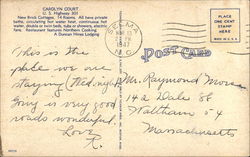 CAROLYN COURT
U. S. Highway 301
New Brick Cottages, 14 Rooms. All have private
baths, circulating hot water heat, continuous hot
water, double or twin beds, tubs or showers, electric
fans. Restaurant features Northern Cooking
A Duncan Hines Lodging
SELMA
1947
POST CARD
PLACE
ONE CENT
STAMP
HERE
This is the
place we are
staying Wed. night
Going is very good
roads wonderful.
Love
R.
Mr. Raymond Morse
142 Dale St
Waltham 54
Massachusetts